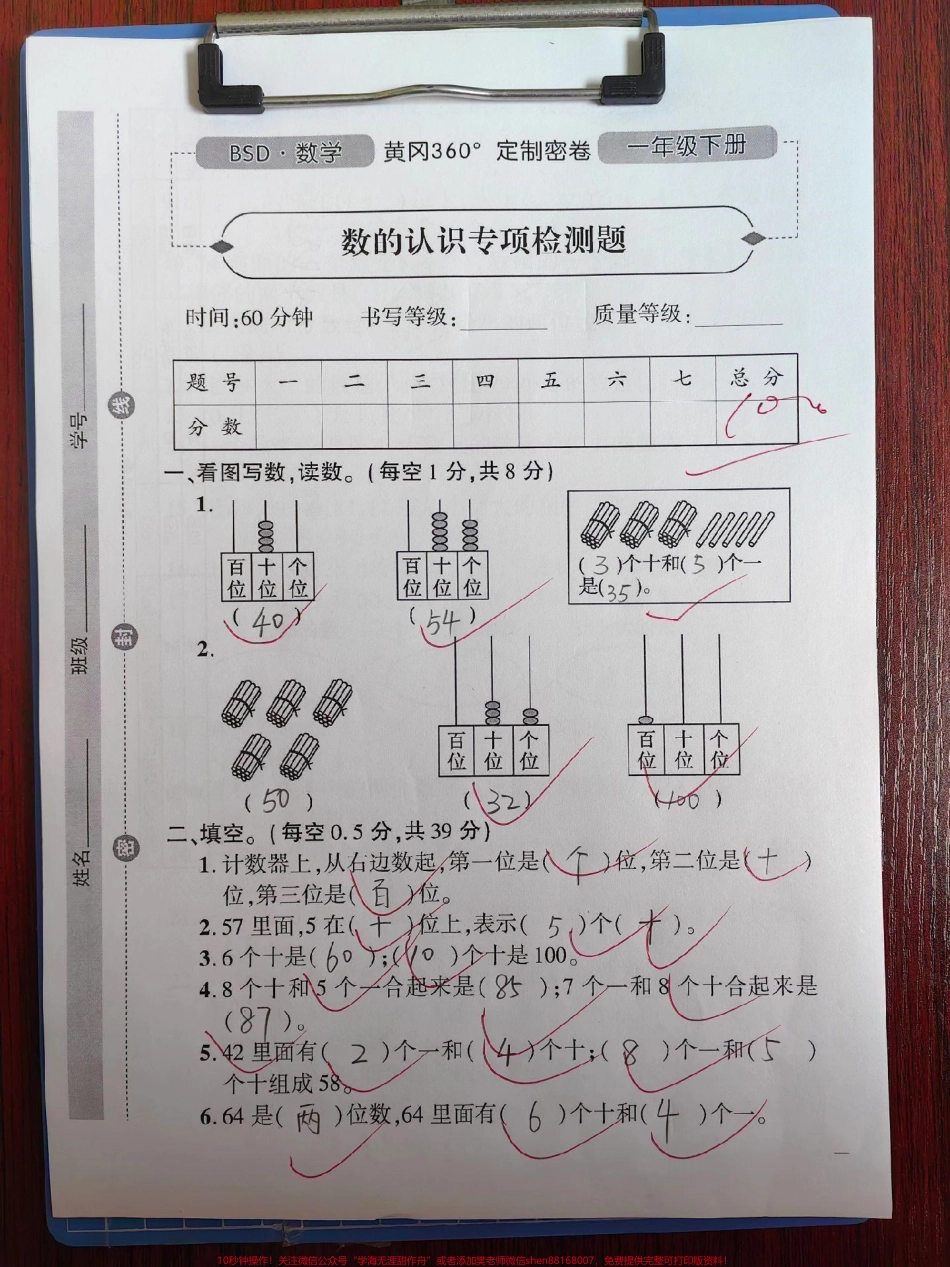 BSD·数学 黄冈360° 定制密卷 一年级下册
数的认识专项检测题
时间:60分钟 书写等级:________ 质量等级:________
题号 一 二 三 四 五 六 七 总分
分数 100
一、看图写数,读数。(每空1分,共8分)
1.
百位 十位 个位
(40)
百位 十位 个位
(54)
(3)个十和(5)个一
是(35)。
2.
(50)
百位 十位 个位
(32)
百位 十位 个位
(100)
二、填空。(每空0.5分,共39分)
1.计数器上,从右边数起,第一位是(个)位,第二位是(十)
位,第三位是(百)位。
2.57里面,5在(十)位上,表示(5)个(十)。
3.6个十是(60);(10)个十是100。
4.8个十和5个一合起来是(85);7个一和8个十合起来是
(87)。
5.42里面有(2)个一和(4)个十;(8)个一和(5)
个十组成58。
6.64是(两)位数,64里面有(6)个十和(4)个一。
学号
班级
姓名
线
封
密
一
10秒钟操作!关注微信公众号“学海无涯甜作舟”或者添加樊老师微信shen88168007,免费提供完整可打印版资料!